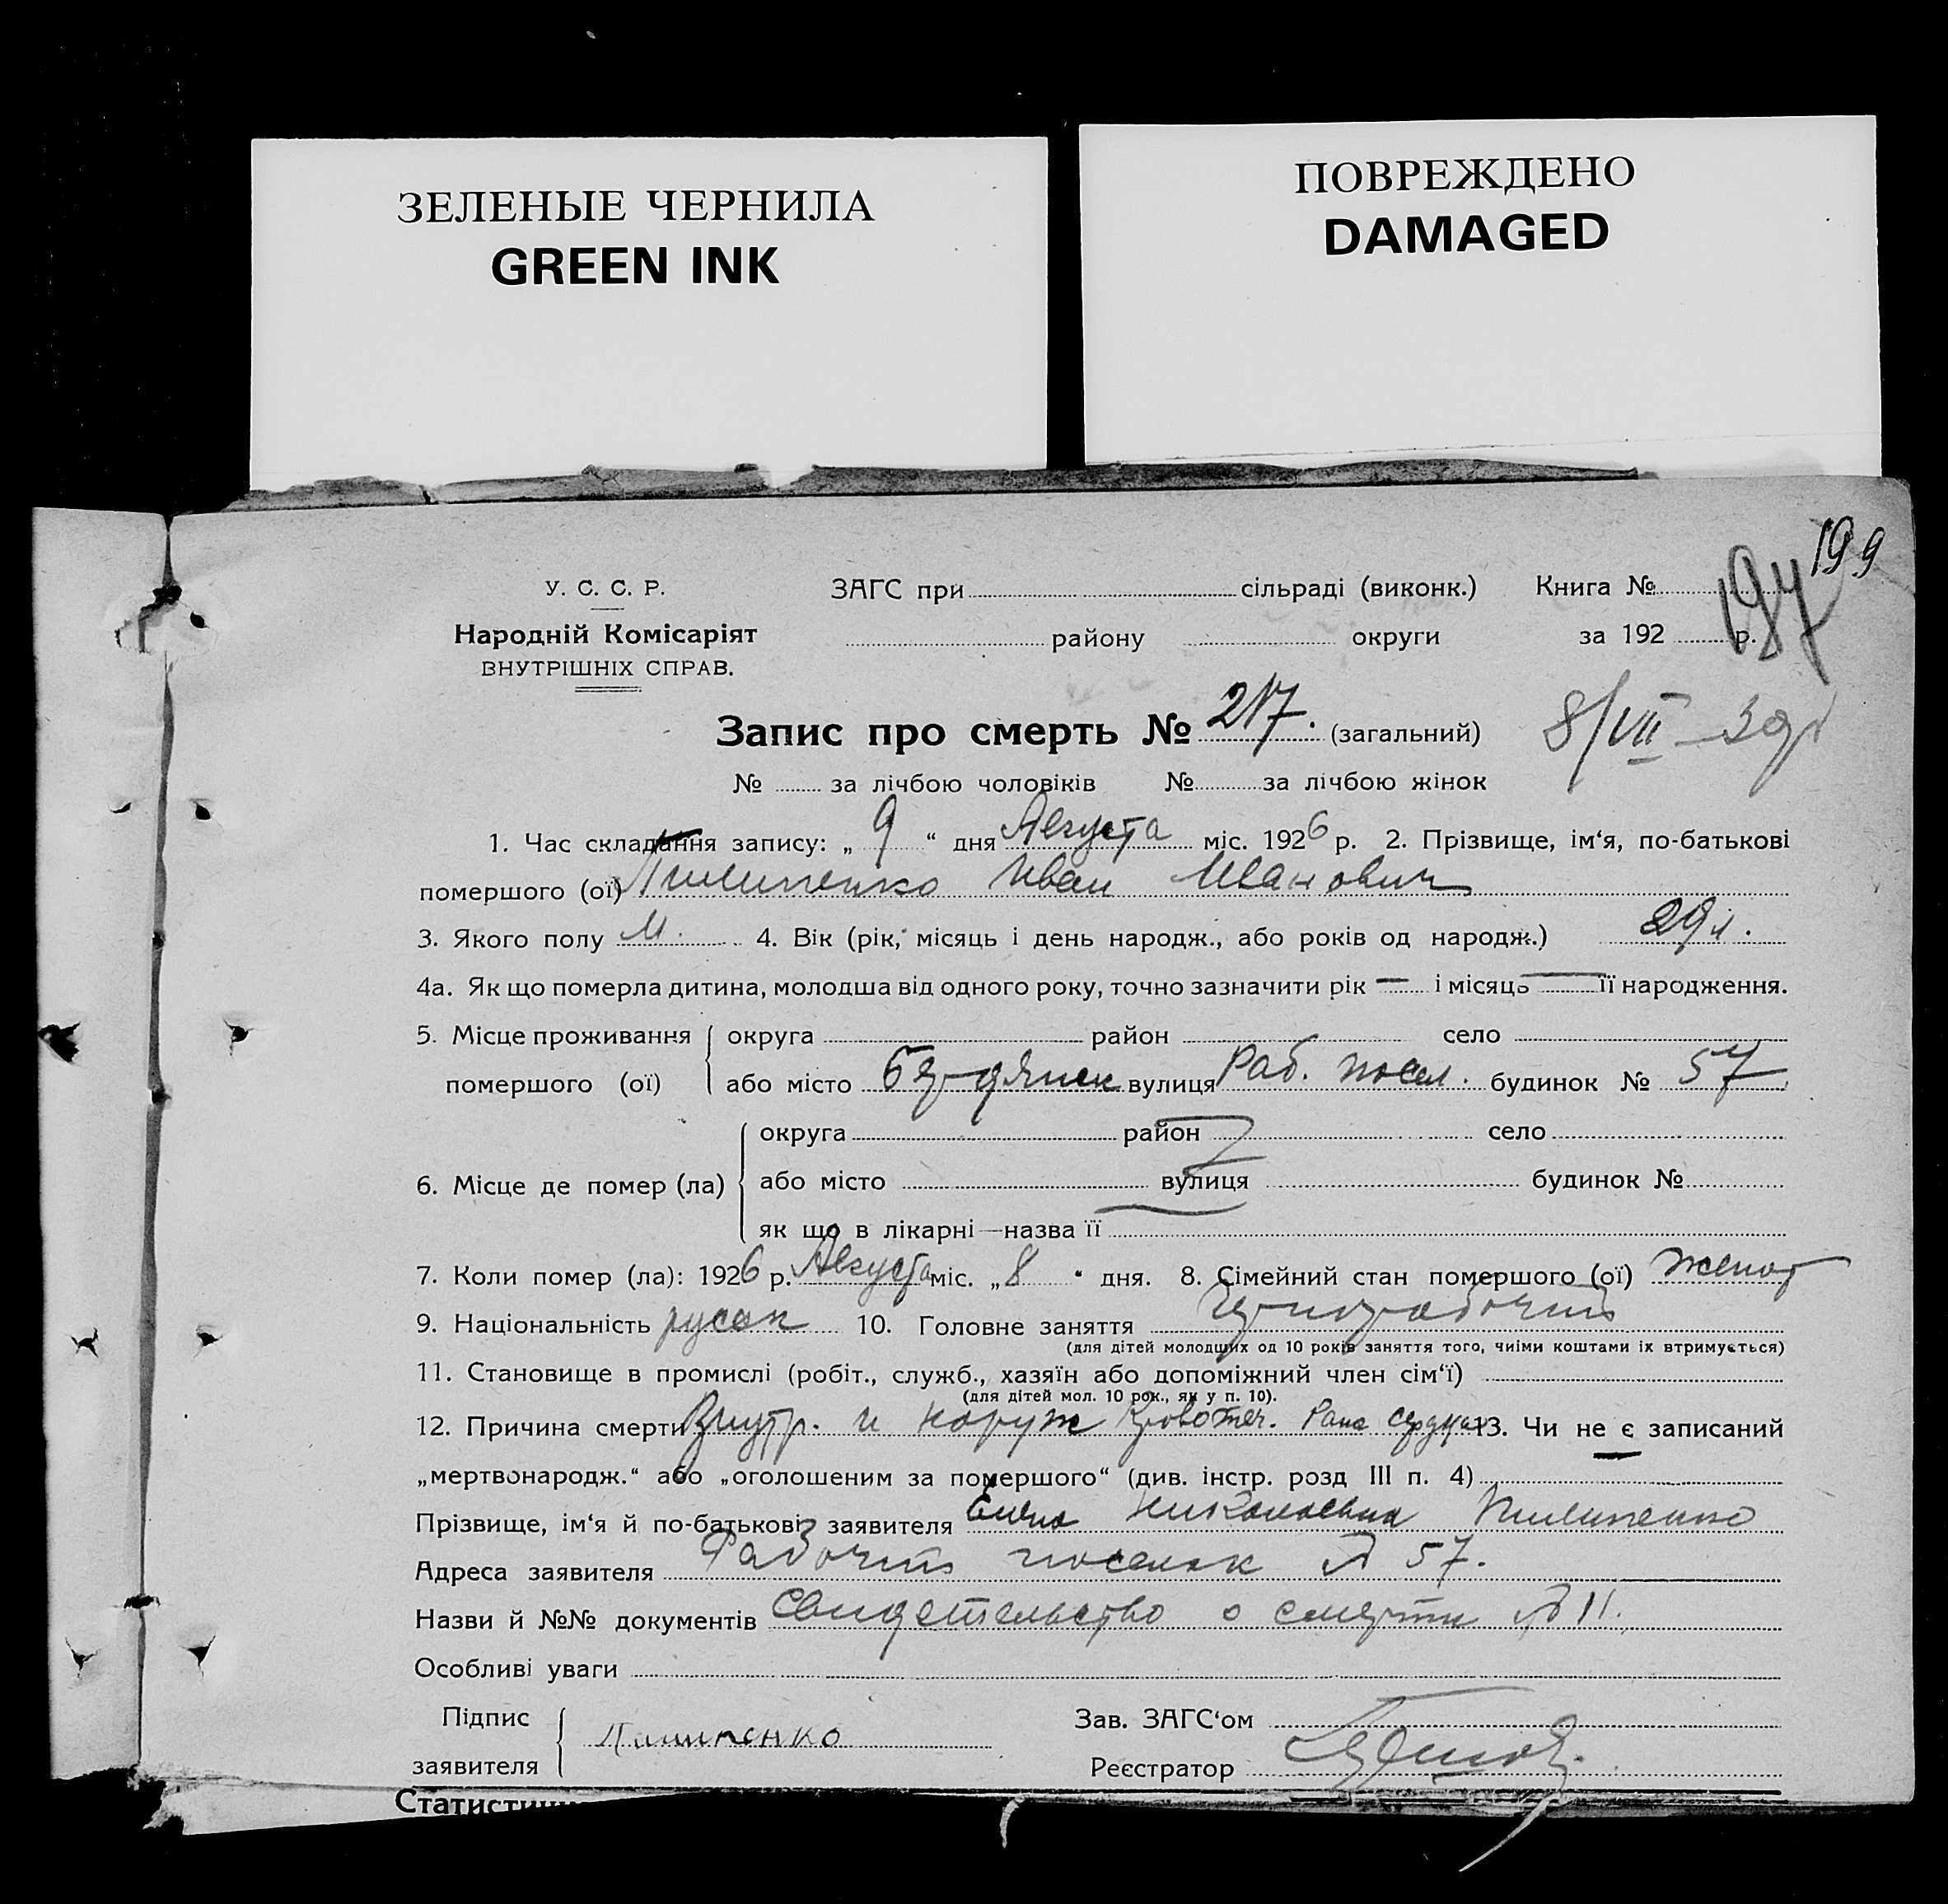 ЗЕЛЕНЫЕ ЧЕРНИЛА
GREEN INK
ПОВРЕЖДЕНО
DAMAGED
199
197
У. С. С. Р.
Народній Комісаріят
ВНУТРІШНІХ СПРАВ.
ЗАГС при сільраді (виконк.) Книга №
району округи за 192 р.
Запис про смерть № 217. (загальний)
8/VII
№ за лічбою чоловіків № за лічбою жінок
1. Час складання запису: „ 9 “ дня Августа міс. 1926 р. 2. Прізвище, ім‘я, по-батькові
помершого (ої) Пилипенко Иван Иванович
3. Якого полу М. 4. Вік (рік, місяць і день народж., або років од народж.) 29 л.
4а. Як що померла дитина, молодша від одного року, точно зазначити рік — і місяць — її народження.
5. Місце проживання помершого (ої) округа район село
або місто Бердянск вулиця Раб. посел. будинок № 57
6. Місце де помер (ла) округа район село
або місто вулиця будинок №
як що в лікарні—назва її
7. Коли помер (ла): 1926 р. Августа міс. „8 “ дня. 8. Сімейний стан помершого (ої) женат
9. Національність русск 10. Головне заняття Чернорабочий
(для дітей молодших од 10 років заняття того, чиїми коштами їх втримується)
11. Становище в промислі (робіт., служб., хазяїн або допоміжний член сім‘ї)
(для дітей мол. 10 рок., як у п. 10).
12. Причина смерти Внутр. и наруж кровотеч. Рана сердца 13. Чи не є записаний
„мертвонародж.“ або „оголошеним за помершого“ (див. інстр. розд III п. 4)
Прізвище, ім‘я й по-батькові заявителя Елена Николаевна Пилипенко
Адреса заявителя Рабочий поселок № 57.
Назви й №№ документів Свидетельство о смерти № 11.
Особливі уваги
Підпис заявителя Пилипенко
Зав. ЗАГС‘ом
Реєстратор